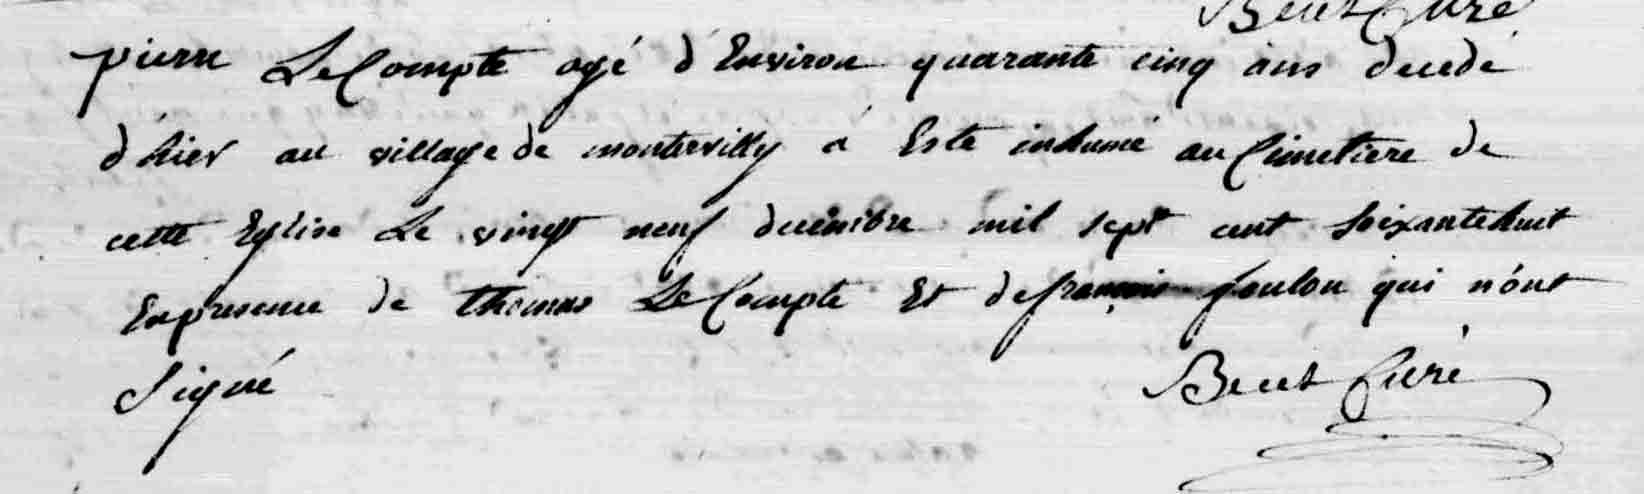 Curé
pierre Le Compte agé d'Environ quarante cinq ans decedé
d'hier au village de montrevilly a Esté inhumé au Cimetiere de
cette Eglise Le vingt neuf decembre mil sept cent Soixantehuit
Enpresence de thomas Le Compte Et defrancois foulon qui n'ont
Signé
Curé